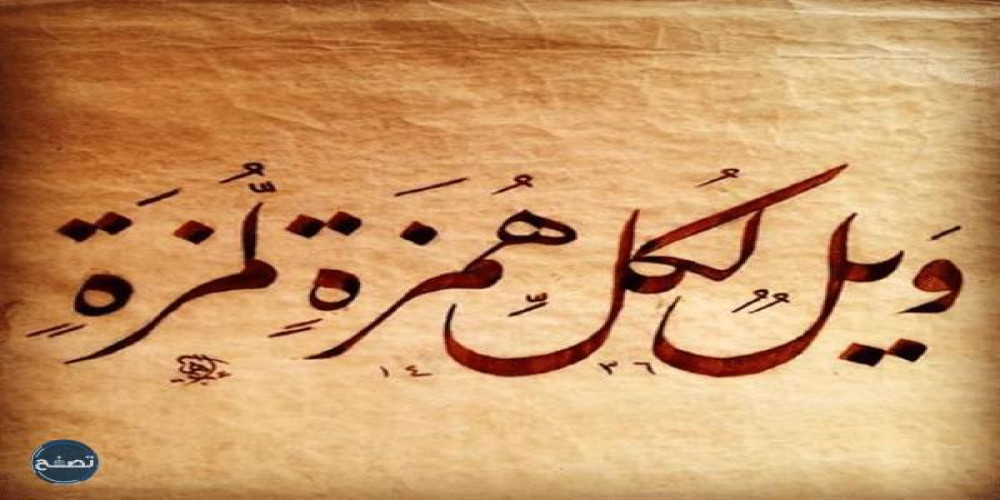 وَيلٌ لكُلِّ هُمَزَةٍ لُّمَزَةٍ
١٤ ٣٦
تصفح